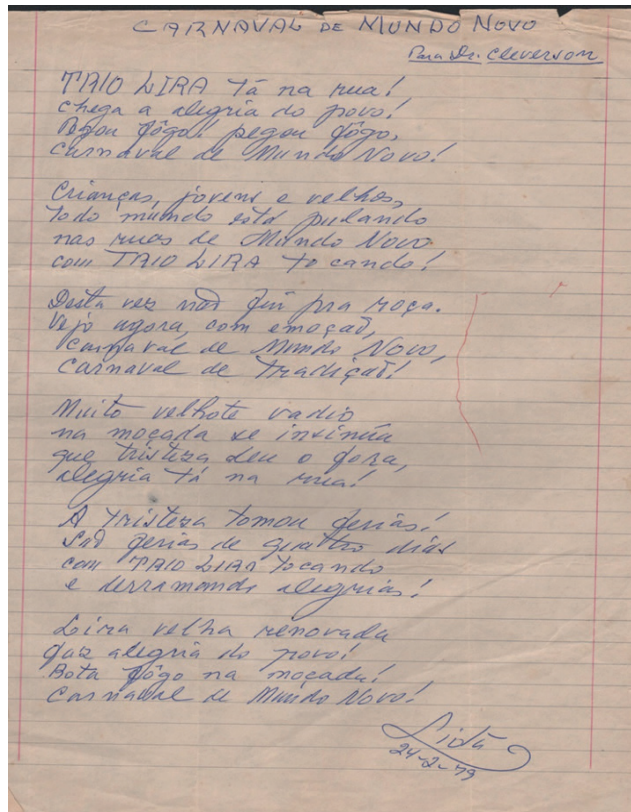 CARNAVAL DE MUNDO NOVO
Para Dr. Cleverson
TRIO LIRA tá na rua!
Chega a alegria do povo!
Pegou fôgo! pegou fôgo,
Carnaval de Mundo Novo!
Crianças, jovens e velhos,
todo mundo está pulando
nas ruas de Mundo Novo
com TRIO LIRA tocando!
Desta vez não fui pra roça.
Vejo agora, com emoção,
Carnaval de Mundo Novo,
Carnaval de Tradição!
Muito velhote vadio
na moçada se insinúa
que tristeza deu o fora,
alegria tá na rua!
A Tristeza tomou ferias!
São ferias de quatro dias
com TRIO LIRA tocando
e derramando alegrias!
Lira velha renovada
faz alegria do povo!
Bota fôgo na moçada!
Carnaval de Mundo Novo!
24-2-79